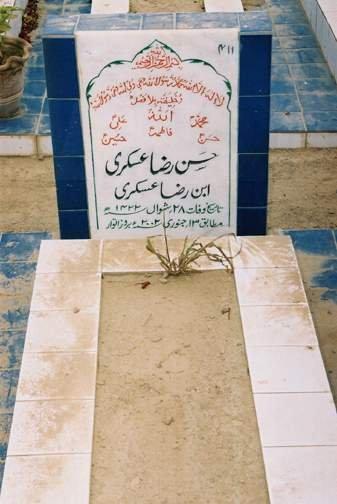 ۴۱۱
بسم اللہ الرحمن الرحیم
لا الہ الا اللہ محمد رسول اللہ علی ولی اللہ وصی رسول اللہ
وخلیفتہ بلا فصل
محمدؐ اللہ علیؑ
حسنؑ فاطمہؑ حسینؑ
حسن رضا عسکری
ابن رضا عسکری
تاریخ وفات ۲۸ شوال ۱۴۲۲ھ
مطابق ۱۳ جنوری ۲۰۰۲ء بروز اتوار